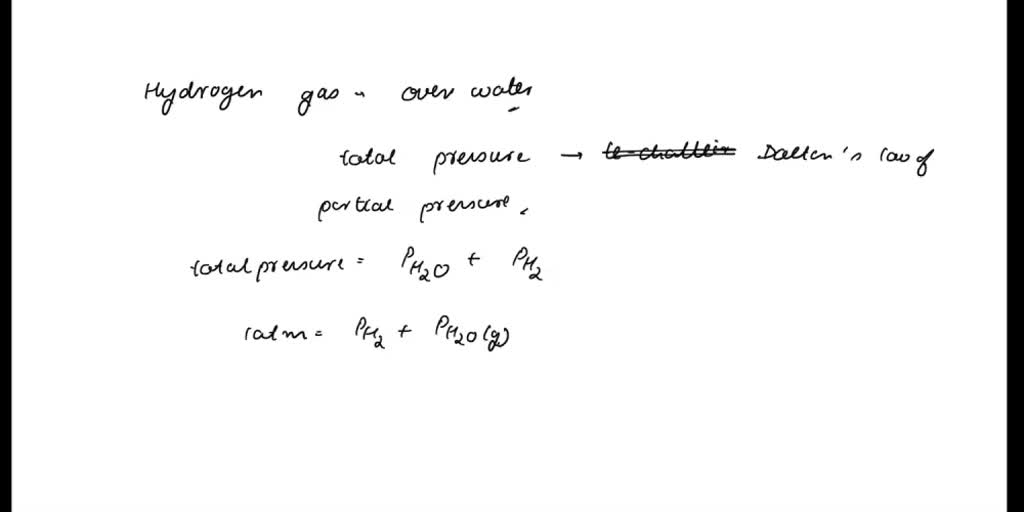 Hydrogen gas - over water
total pressure → Dalton's law of
partial pressure.
total pressure = P_H₂O + P_H₂
1 atm = P_H₂ + P_H₂O(g)